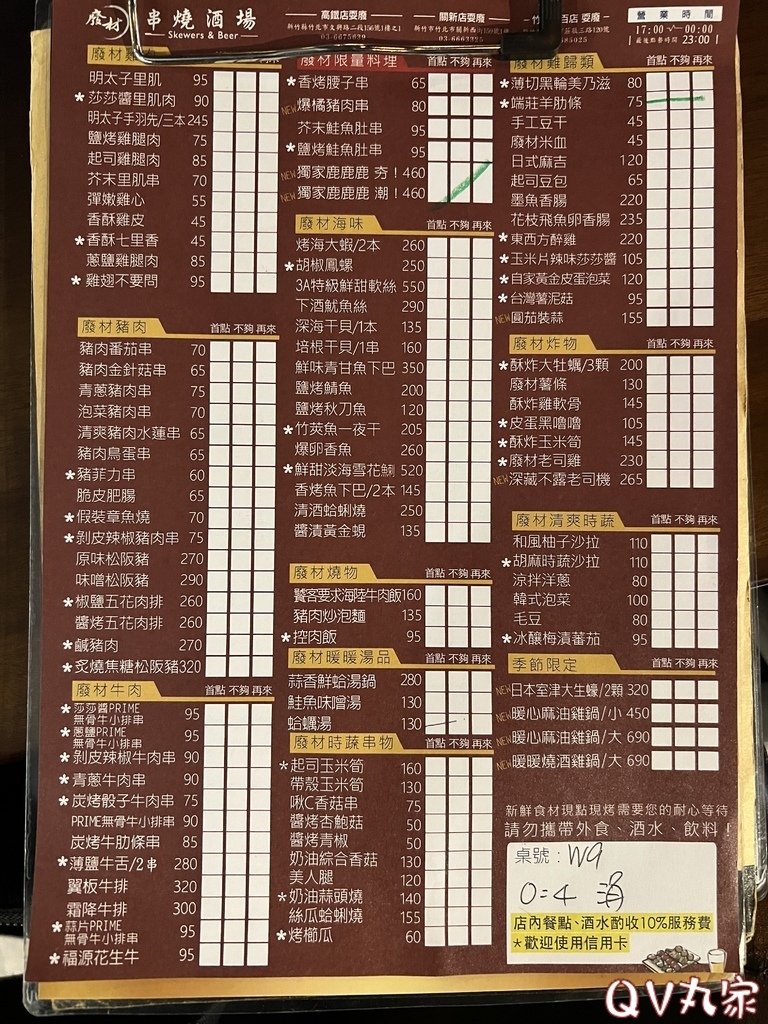 廢材 串燒酒場
Skewers & Beer
高鐵店耍廢
新竹縣竹北市文興路二段156號1樓之1
03-6675639
關新店耍廢
營業時間
17:00 ~ 00:00
最後點餐時間 23:00
廢材雞肉
明太子里肌 95
*莎莎醬里肌肉 90
明太子手羽先/三本 245
鹽烤雞腿肉 75
起司雞腿肉 85
芥末里肌串 70
彈嫩雞心 55
香酥雞皮 45
*香酥七里香 45
蔥鹽雞腿肉 85
*雞翅不要問 95
廢材豬肉 首點 不夠 再來
豬肉番茄串 70
豬肉金針菇串 65
青蔥豬肉串 75
泡菜豬肉串 70
清爽豬肉水蓮串 65
豬肉鳥蛋串 65
*豬菲力串 60
脆皮肥腸 65
*假裝章魚燒 70
*剝皮辣椒豬肉串 75
原味松阪豬 270
味噌松阪豬 290
*椒鹽五花肉排 260
醬烤五花肉排 260
*鹹豬肉 270
*炙燒焦糖松阪豬 320
廢材牛肉 首點 不夠 再來
*莎莎醬PRIME
無骨牛小排串 95
*蔥鹽PRIME
無骨牛小排串 95
*剝皮辣椒牛肉串 90
青蔥牛肉串 90
*炭烤骰子牛肉串 75
PRIME無骨牛小排串 90
炭烤牛肋條串 85
*薄鹽牛舌/2串 280
翼板牛排 320
霜降牛排 300
*蒜片PRIME
無骨牛小排串 95
*福源花生牛 95
廢材限量料理 首點 不夠 再來
*香烤腰子串 65
NEW 爆橘豬肉串 80
芥末鮭魚肚串 95
*鹽烤鮭魚肚串 95
NEW 獨家鹿鹿鹿 夯！ 460
NEW 獨家鹿鹿鹿 潮！ 460
廢材海味 首點 不夠 再來
烤海大蝦/2本 260
*胡椒鳳螺 250
3A特級鮮甜軟絲 550
下酒魷魚絲 290
深海干貝/1本 135
培根干貝/1串 160
鮮味青甘魚下巴 350
鹽烤鯖魚 200
鹽烤秋刀魚 120
*竹莢魚一夜干 205
爆卵香魚 260
*鮮甜淡海雪花鯛 520
香烤魚下巴/2本 145
清酒蛤蜊燒 250
醬漬黃金蜆 135
廢材燒物 首點 不夠 再來
饕客要求海陸牛肉飯 160
豬肉炒泡麵 135
*控肉飯 95
廢材暖暖湯品 首點 不夠 再來
蒜香鮮蛤湯鍋 280
鮭魚味噌湯 130
蛤蠣湯 130
廢材時蔬串物 首點 不夠 再來
*起司玉米筍 160
帶殼玉米筍 130
啾C香菇串 75
醬烤杏鮑菇 50
醬烤青椒 50
奶油綜合香菇 130
美人腿 120
*奶油蒜頭燒 140
絲瓜蛤蜊燒 155
*烤櫛瓜 60
廢材雜歸類 首點 不夠 再來
*薄切黑輪美乃滋 80
*端莊羊肋條 75
手工豆干 45
廢材米血 45
日式麻吉 120
起司豆包 65
墨魚香腸 220
花枝飛魚卵香腸 235
*東西方醉雞 220
*玉米片辣味莎莎醬 105
*自家黃金皮蛋泡菜 120
*台灣薯泥菇 95
NEW 圓茄裝蒜 155
廢材炸物 首點 不夠 再來
*酥炸大牡蠣/3顆 200
廢材薯條 130
酥炸雞軟骨 145
*皮蛋黑嚕嚕 105
*酥炸玉米筍 145
*廢材老司雞 230
NEW 深藏不露老司機 265
廢材清爽時蔬 首點 不夠 再來
和風柚子沙拉 110
*胡麻時蔬沙拉 110
涼拌洋蔥 80
韓式泡菜 100
毛豆 80
*冰釀梅漬蕃茄 95
季節限定 首點 不夠 再來
NEW 日本室津大生蠔/2顆 320
NEW 暖心麻油雞鍋/小 450
NEW 暖心麻油雞鍋/大 690
NEW 暖暖燒酒雞鍋/大 690
新鮮食材現點現烤需要您的耐心等待
請勿攜帶外食、酒水、飲料！
桌號：W9
店內餐點、酒水酌收10%服務費
*歡迎使用信用卡
QV丸家